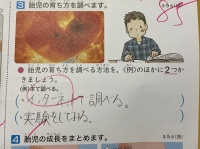 3 胎児の育ち方を調べます。
85
● 胎児の育ち方を調べる方法を,〈例〉のほかに2つか
きましょう。
〈例〉本で調べる。
・インターネットで調べる。
・実験をしてみる。
4 胎児の成長をまとめます。